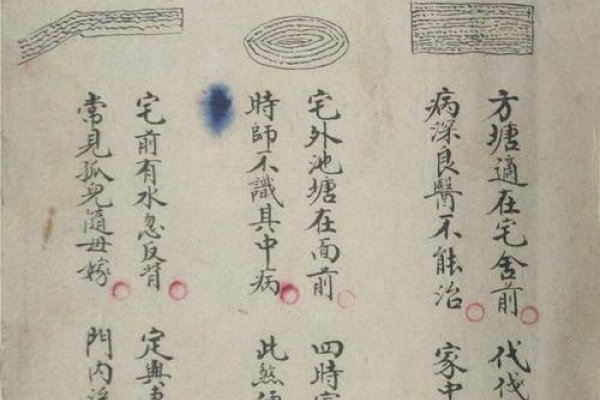 方塘適在宅舍前 代
病深良醫不能治 家中
宅外池塘在面前 四時
時師不識其中病 此煞
宅前有水忽反背 定
常見孤兒隨母嫁 門內